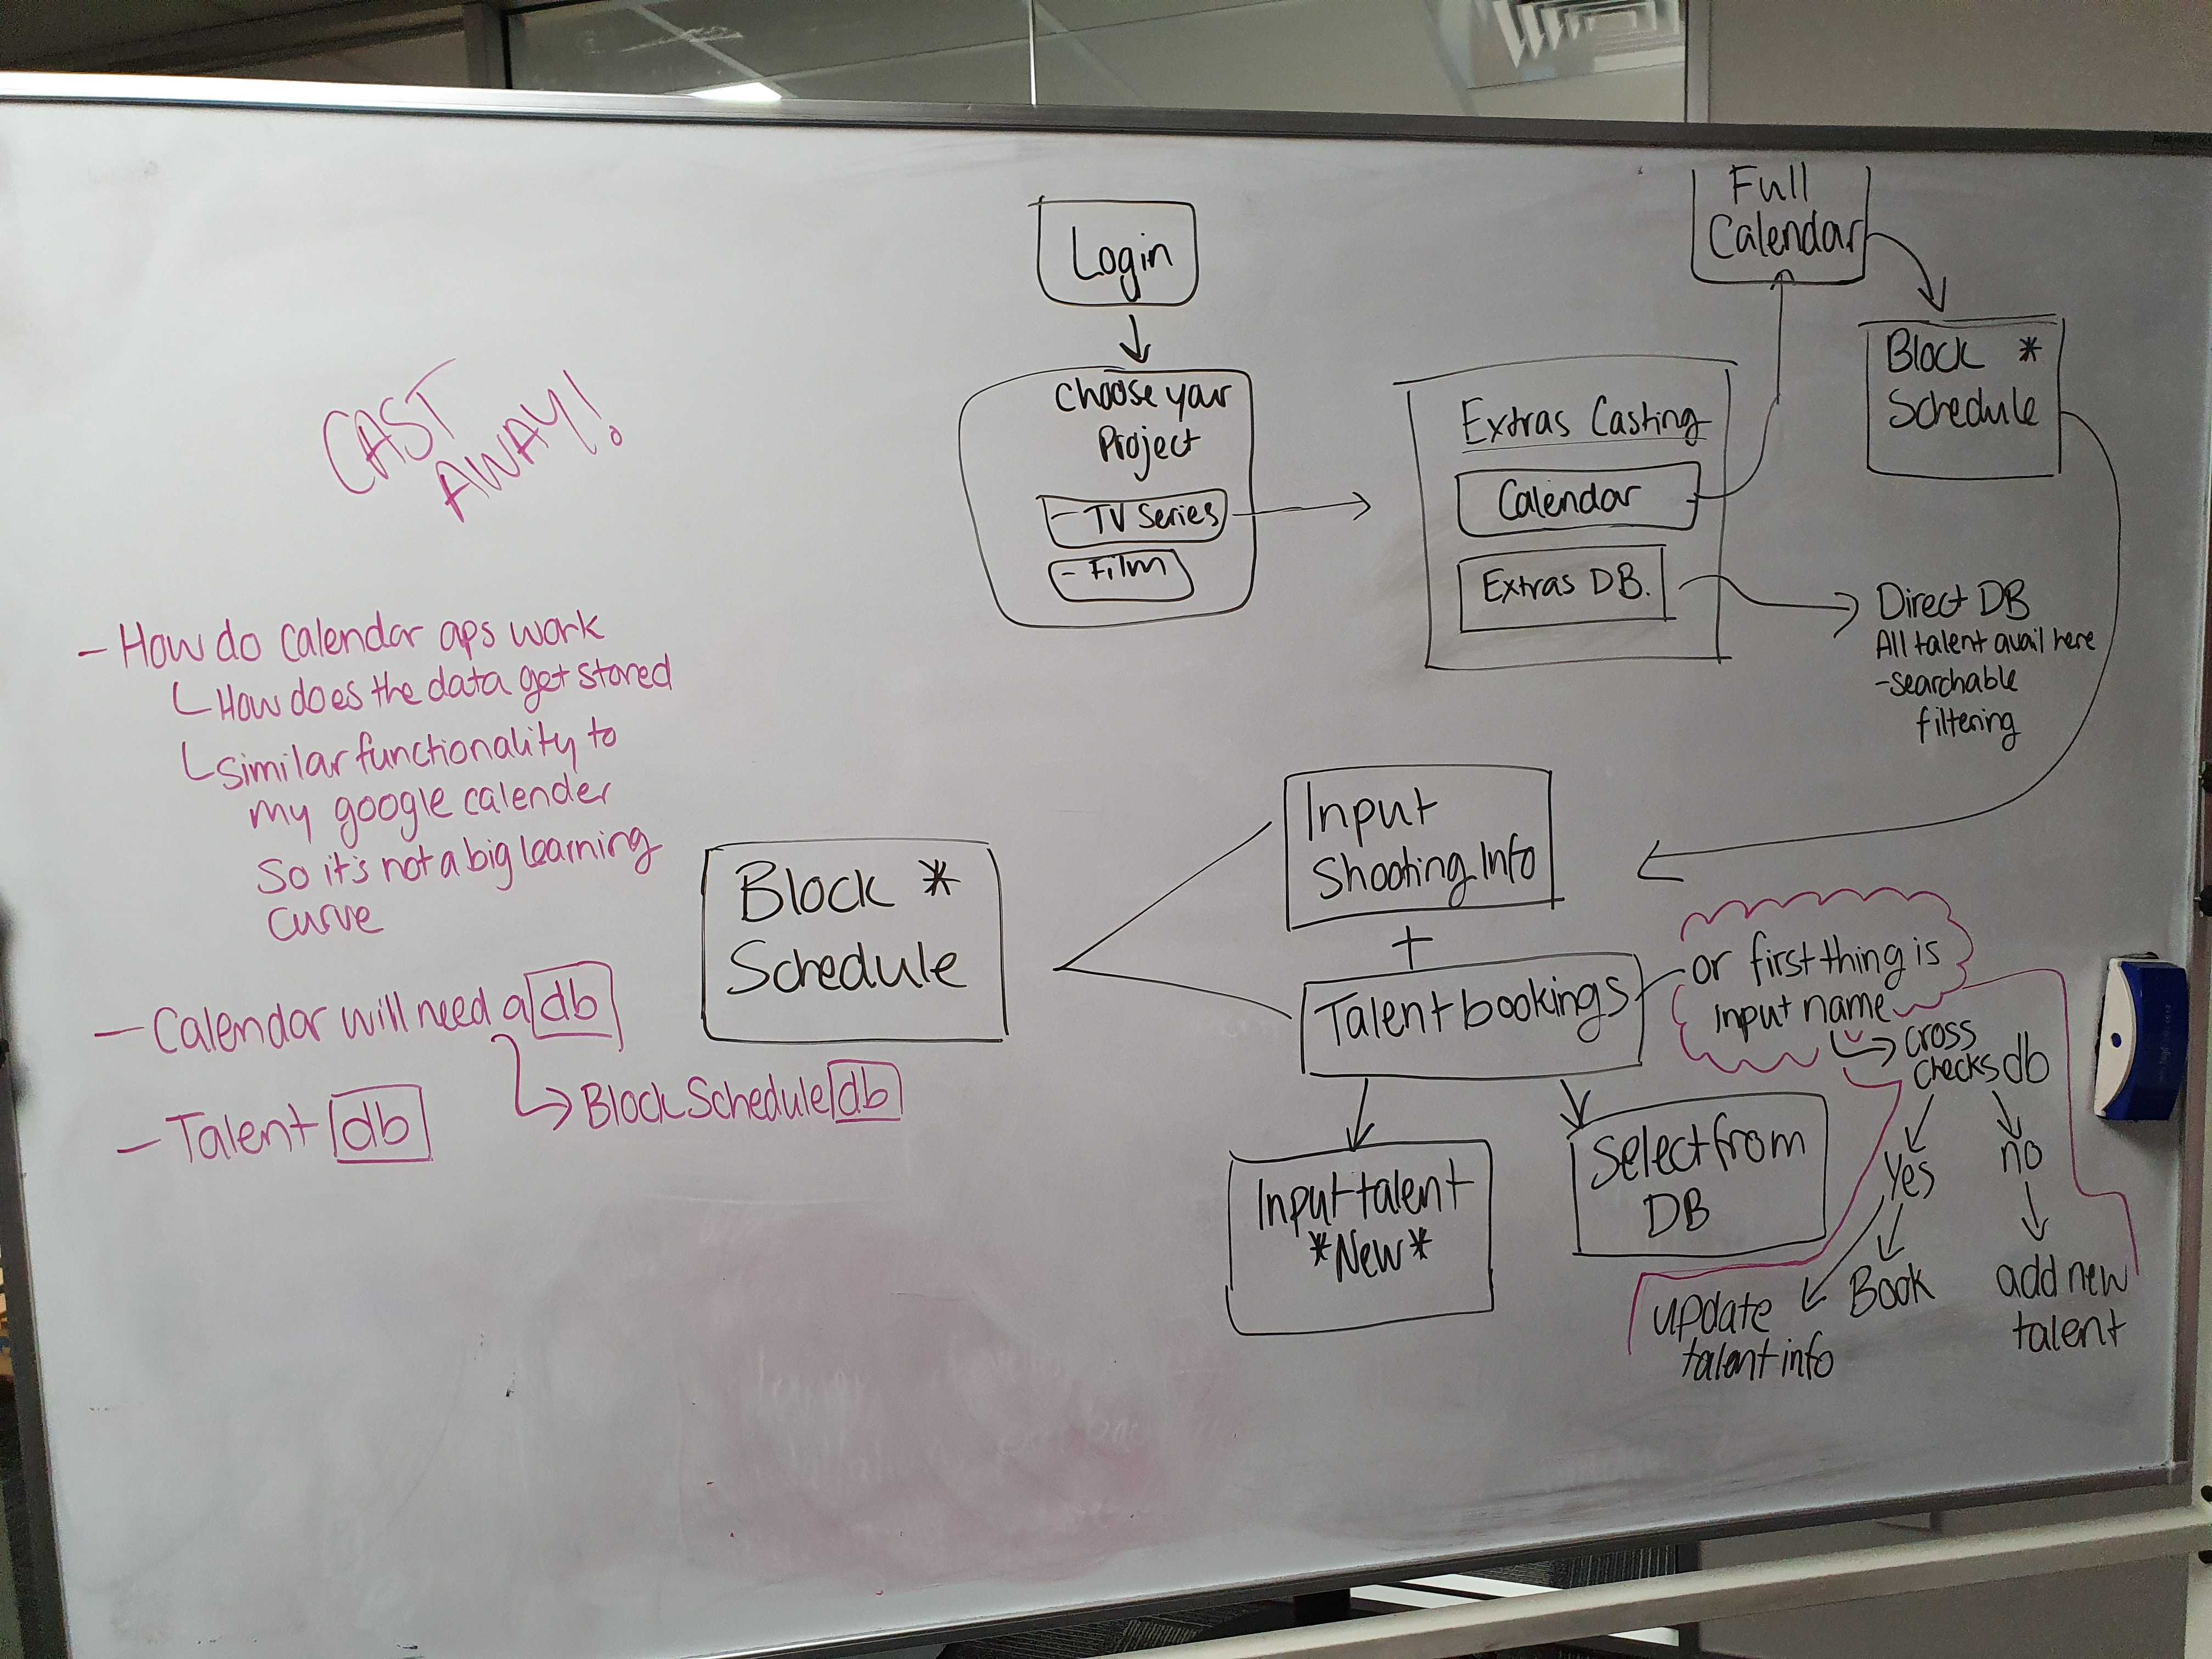 CAST
AWAY!
- How do calendar aps work
How does the data get stored
similar functionality to
my google calender
So it's not a big learning
curve
- Calendar will need a db
Block Schedule db
- Talent db
Login
Choose your
Project
- TV Series
- Film
Extras Casting
Calendar
Extras DB.
Full
Calendar
Block *
Schedule
Direct DB
All talent avail here
- searchable
filtering
Block *
Schedule
Input
Shooting Info
+
Talent bookings
Input talent
*New*
Select from
DB
or first thing is
input name
cross
checks db
yes
no
Book
update
talent info
add new
talent